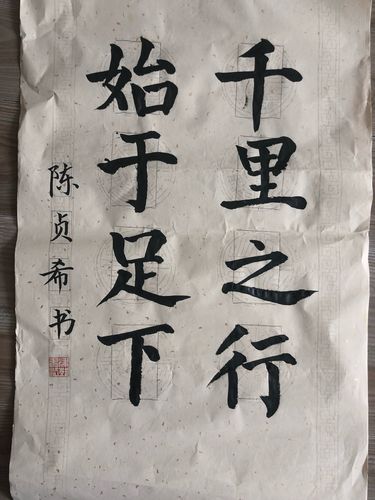 千里之行
始于足下
陈贞希书